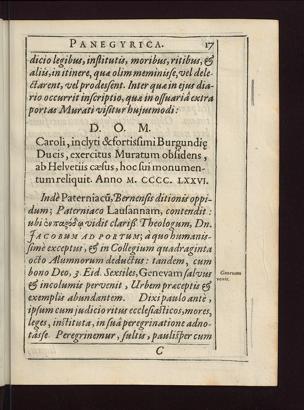 PANEGYRICA. 17
dicio legibus, institutis, moribus, ritibus, &
aliis, in itinere, quæ olim meminisse, vel dele-
ctarent, vel prodessent. Inter quæ in ejus dia-
rio occurrit inscriptio, quæ in ossuariâ extra
portas Murati visitur hujusmodi:
D. O. M.
Caroli, inclyti & fortissimi Burgundię
Ducis, exercitus Muratum obsidens,
ab Helvetiis cæsus, hoc sui monumen-
tum reliquit. Anno M. CCCC. LXXVI.
Indè Paterniacũ, Bernensis ditionis oppi-
dum; Paterniaco Lausannam, contendit:
ubi vidit clariss. Theologum, Dn.
JACOBUM AD PORTUM; à quo humanis-
simè exceptus, & in Collegium quadraginta
octo Alumnorum deductus: tandem, cum
bono Deo, 3. Eid. Sextiles, Genevam salvus
& incolumis pervenit, Urbem præceptis &
exemplis abundantem. Dixi paulo antè,
ipsum cum judicio ritus ecclesiasticos, mores,
leges, instituta, in suâ peregrinatione adno-
tâsse. Peregrinemur, sultis, paulisper cum
Genevam
venit.
C